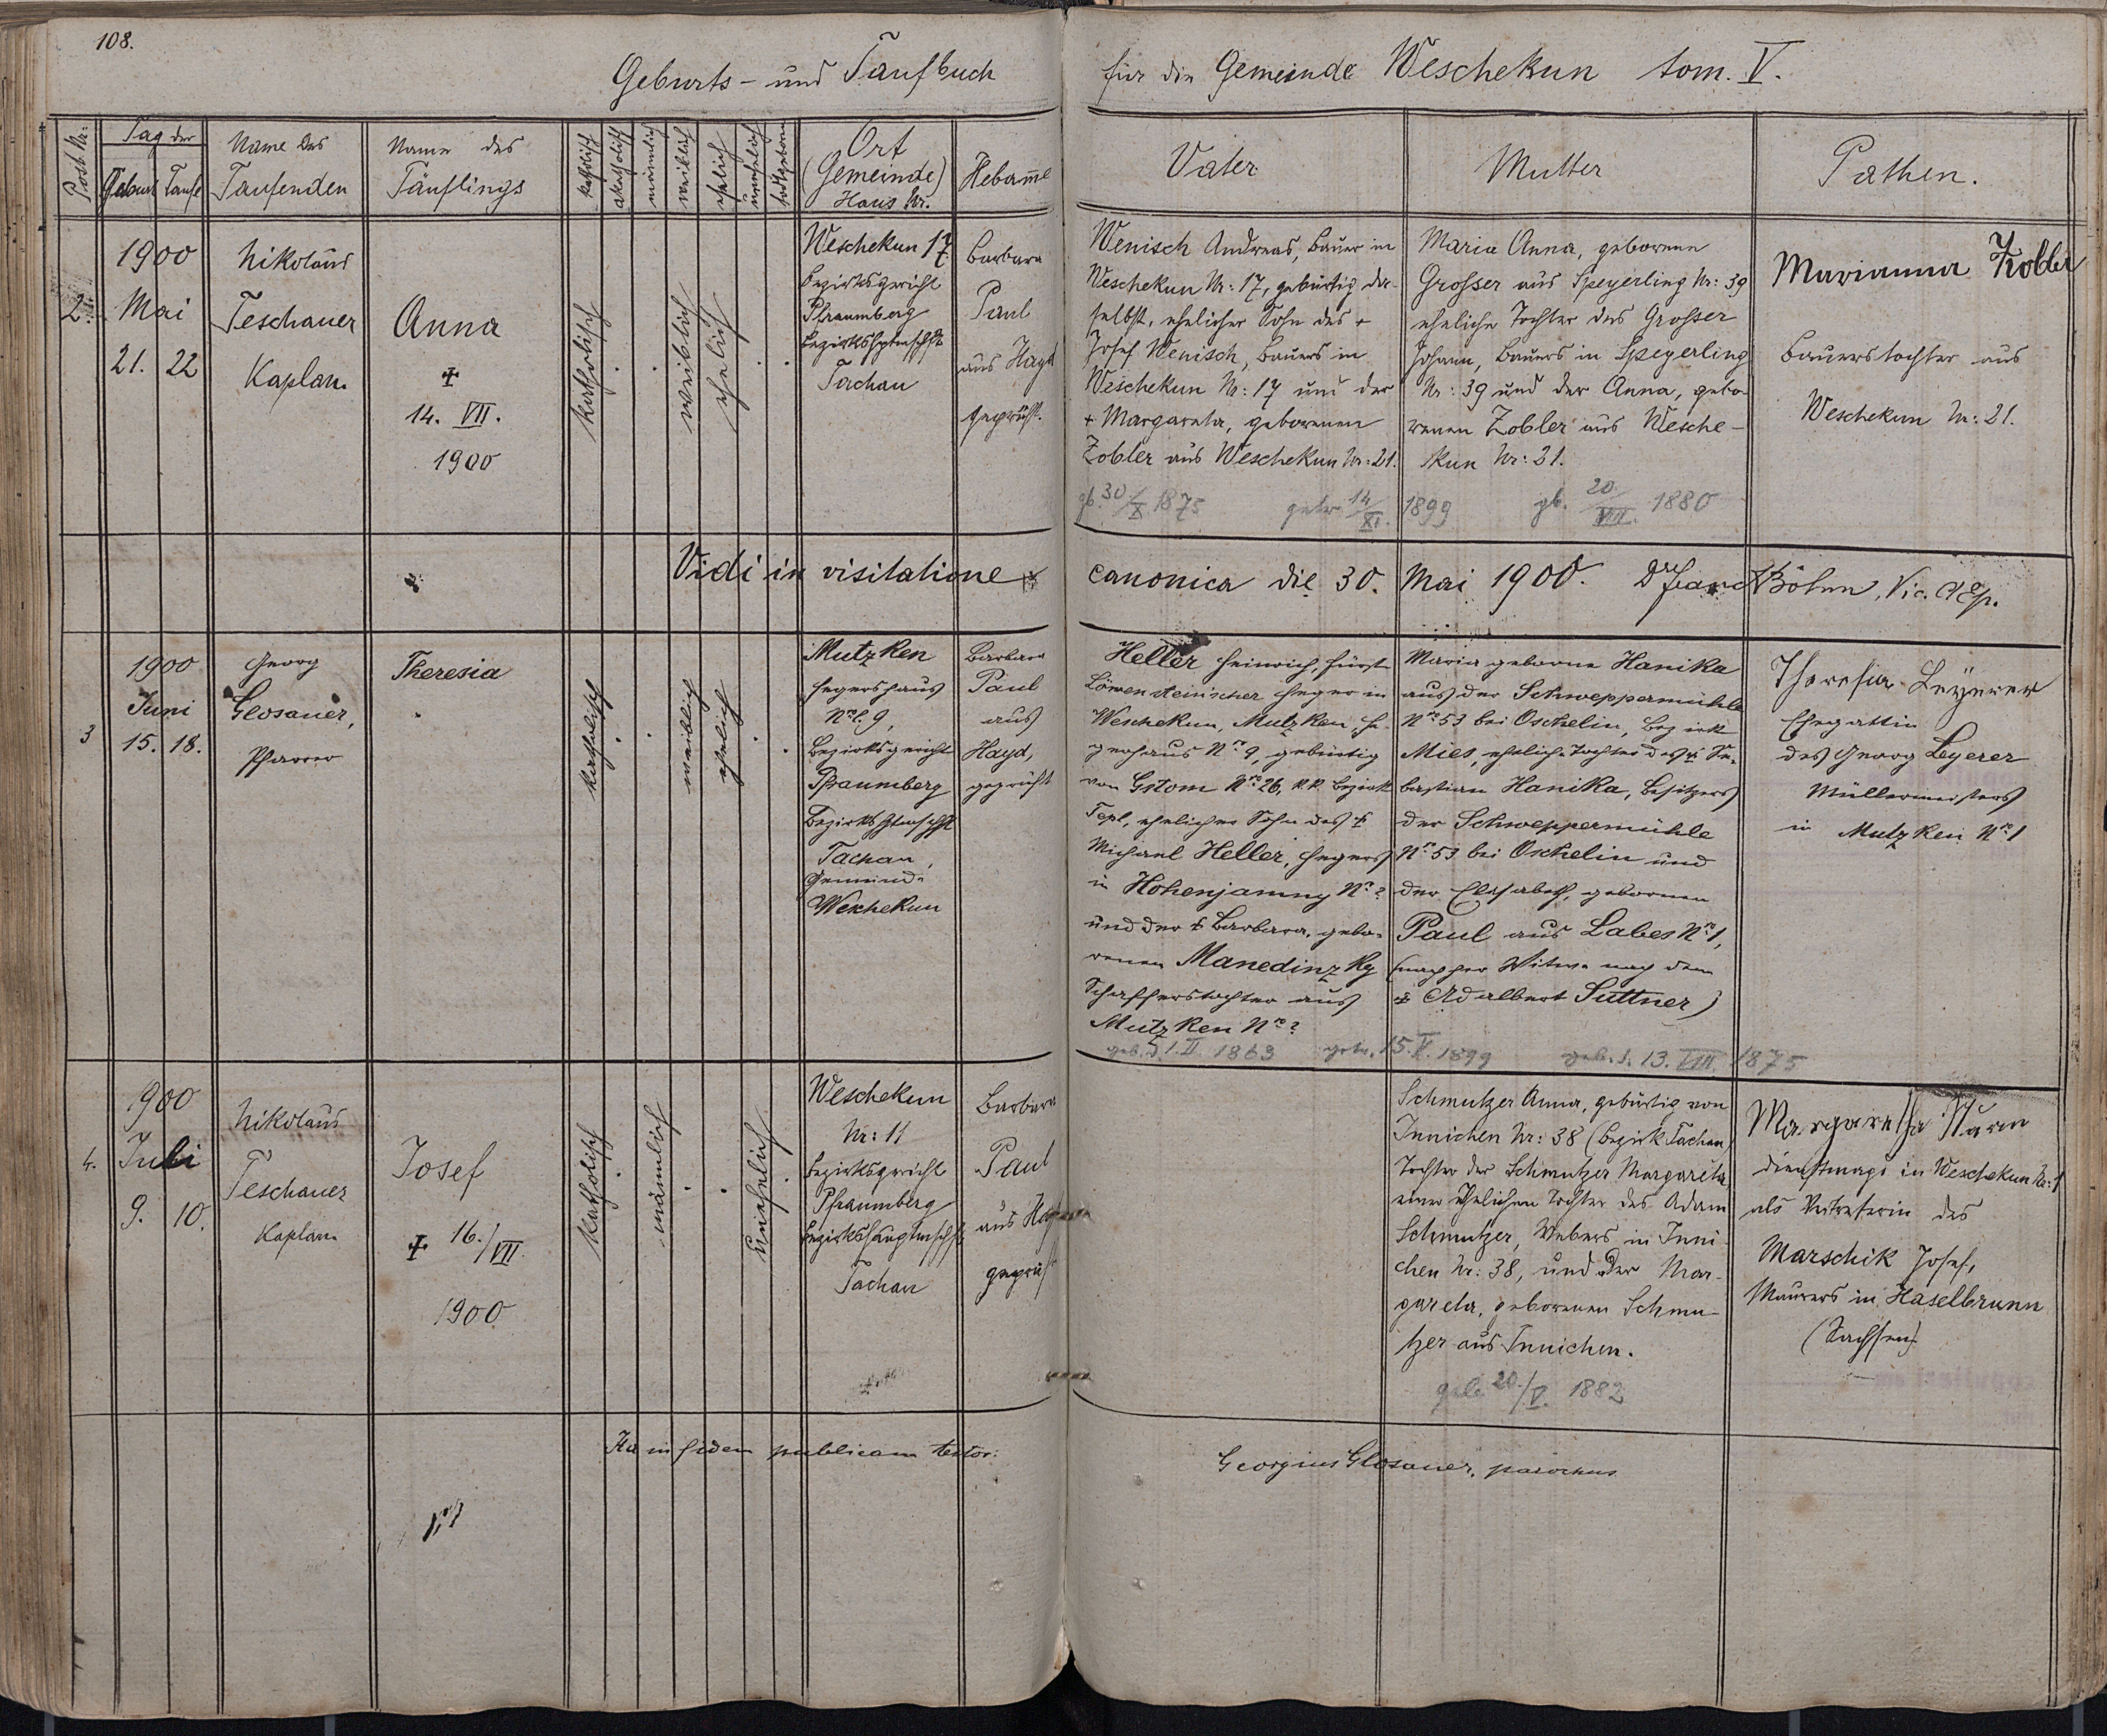 108.
Geburts- und Taufbuch
für die Gemeinde Weschekun tom. V.
Post Nr:
Tag der
Geburt Taufe
Name des
Taufenden
Name des
Täuflings
katholisch
akatholisch
männlich
weiblich
ehelich
unehelich
todtgeboren
Ort
(Gemeinde)
Haus Nr.
Hebamme
Vater
Mutter
Pathen.
2.
1900
Mai
21. 22
Nikolaus
Teschauer
Kaplan.
Anna
+
14. VII.
1900
katholisch
weiblich
ehelich
Weschekun 17
Bezirksgericht
Pfraumberg
Bezirkshptmschft
Tachau
Barbara
Paul
aus Hayd
geprüft.
Wenisch Andreas, Bauer in
Weschekun Nr: 17, gebürtig da-
selbst, ehelicher Sohn des +
Josef Wenisch, Bauers in
Weschekun Nr: 17 und der
+ Margareta, geborenen
Zobler aus Weschekun Nr: 21.
gb. 30/X. 1875 getr. 14/XI. 1899
Maria Anna, geborene
Grosser aus Speyerling Nr: 39
eheliche Tochter des Grosser
Johann, Bauers in Speyerling
Nr: 39 und der Anna, gebo-
renen Zobler aus Wesche-
kun Nr: 21.
gb. 20./VIII. 1880
Marianna Zobler
Bauerstochter aus
Weschekun Nr: 21.
Vidi in visitatione canonica die 30. Mai 1900. Dr Böhm, Vic. AEp.
3
1900
Juni
15. 18.
Georg
Glosauer,
Pfarrer
Theresia
katholisch
weiblich
ehelich
Mutzken
Hegershaus
Nr. 9,
Bezirksgericht
Pfraumberg
Bezirkshptmschft
Tachau,
Gemeinde
Weschekun
Barbara
Paul
aus
Hayd,
geprüft
Heller Heinrich, fürst
Löwensteinscher Heger in
Weschekun, Mutzken, He-
gerhaus No. 9, gebürtig
von Gstom No. 26, k.k. Bezirk
Tepl, ehelicher Sohn des +
Michael Heller, Hegers
in Hohenjamny No. ?
und der + Barbara, gebo-
renen Manedinzky
Schafferstochter aus
Mutzken No. ?
geb. d. 1. II. 1863 getr. 15. V. 1899
Maria geborne Hanika
aus der Schweppermühle
No. 53 bei Oschelin, Bezirk
Mies, eheliche Tochter des + Se-
bastian Hanika, Besitzers
der Schweppermühle
No. 53 bei Oschelin und
der Elisabeth, gebornen
Paul aus Labes No. 1,
Witwe nach dem
+ Adalbert Suttner)
geb. d. 13. VIII 1875
Theresia Leyerer
Ehegattin
des Georg Leyerer
Müllermeisters
in Mutzken No. 1
4.
1900
Juli
9. 10.
Nikolaus
Teschauer
Kaplan
Josef
+ 16./VII.
1900
katholisch
männlich
unehelich
Weschekun
Nr: 11
Bezirksgericht
Pfraumberg
Bezirkshauptmschft
Tachau
Barbara
Paul
aus Hayd
geprüft
Schmutzer Anna, gebürtig von
Innichen Nr: 38 (Bezirk Tachau)
Tochter der Schmutzer Margareta
einer ehelichen Tochter des Adam
Schmutzer, Webers in Inni-
chen Nr: 38, und der Mar-
gareta, geborenen Schmu-
tzer aus Innichen.
geb. 20./V. 1882
Margaretha Sturm
Dienstmagd in Weschekun Nr: 1
als Vertreterin des
Marschik Josef,
Maurers in Haselbrunn
(Sachsen)
Ita in fidem publicam testor:
Georgius Glosauer, parochus